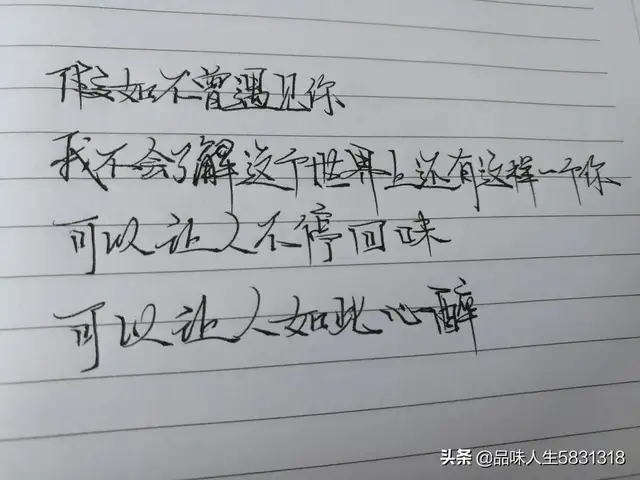 假如不曾遇见你
我不会了解这个世界上还有这样一个你
可以让人不停回味
可以让人如此心醉
头条 @品味人生5831318